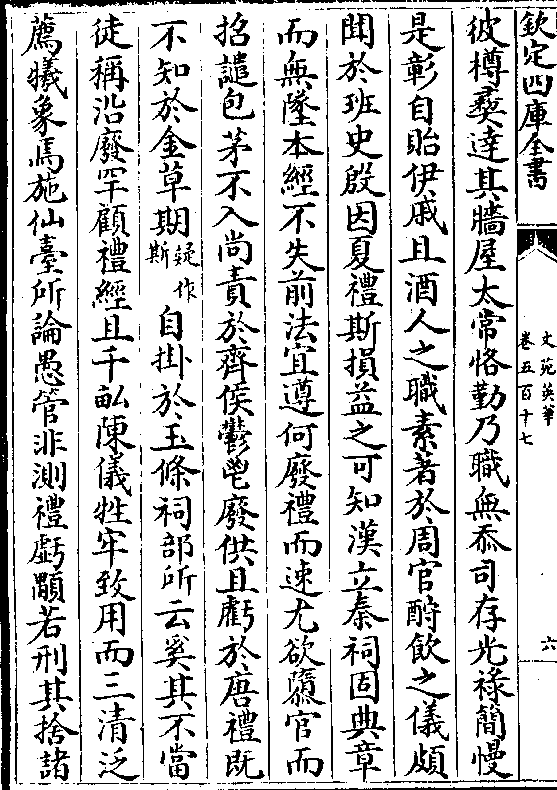 欽定四庫全書
文苑英華
卷五百十七
六
彼樽彜達其牆屋太常恪勤乃職無忝司存光祿簡慢
是彰自貽伊戚且酒人之職素著於周官酎飲之儀頗
聞於班史殷因夏禮斯損益之可知漢立秦祠固典章
而無墜本經不失前法宜遵何廢禮而速尤欲隳官而
招譴包茅不入尚責於齊侯鬱鬯廢供且虧於唐禮既
不知於金草期疑作斯自掛於玉條祠部所云奚其不當
徒稱沿廢罕顧禮經且千畝陳儀牲牢致用而三清泛
薦犠象焉施仙臺所論愚管非測禮虧顒若刑其捨諸